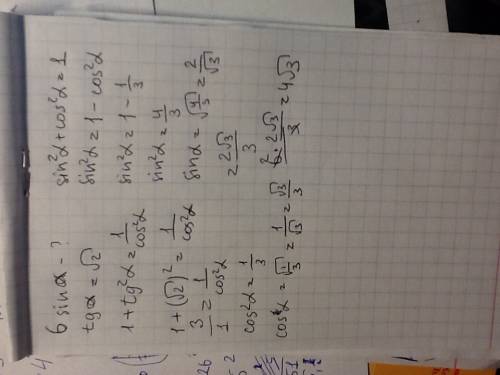 6 sinα - ?
tgα = √2
1 + tg²α = 1/cos²α
1 + (√2)² = 1/cos²α
3/1 = 1/cos²α
cos²α = 1/3
cosα = √1/3 = 1/√3 = √3/3
sin²α + cos²α = 1
sin²α = 1 - cos²α
sin²α = 1 - 1/3
sin²α = 4/3
sinα = √4/3 = 2/√3
= 2√3/3
6 · 2√3/3 = 4√3